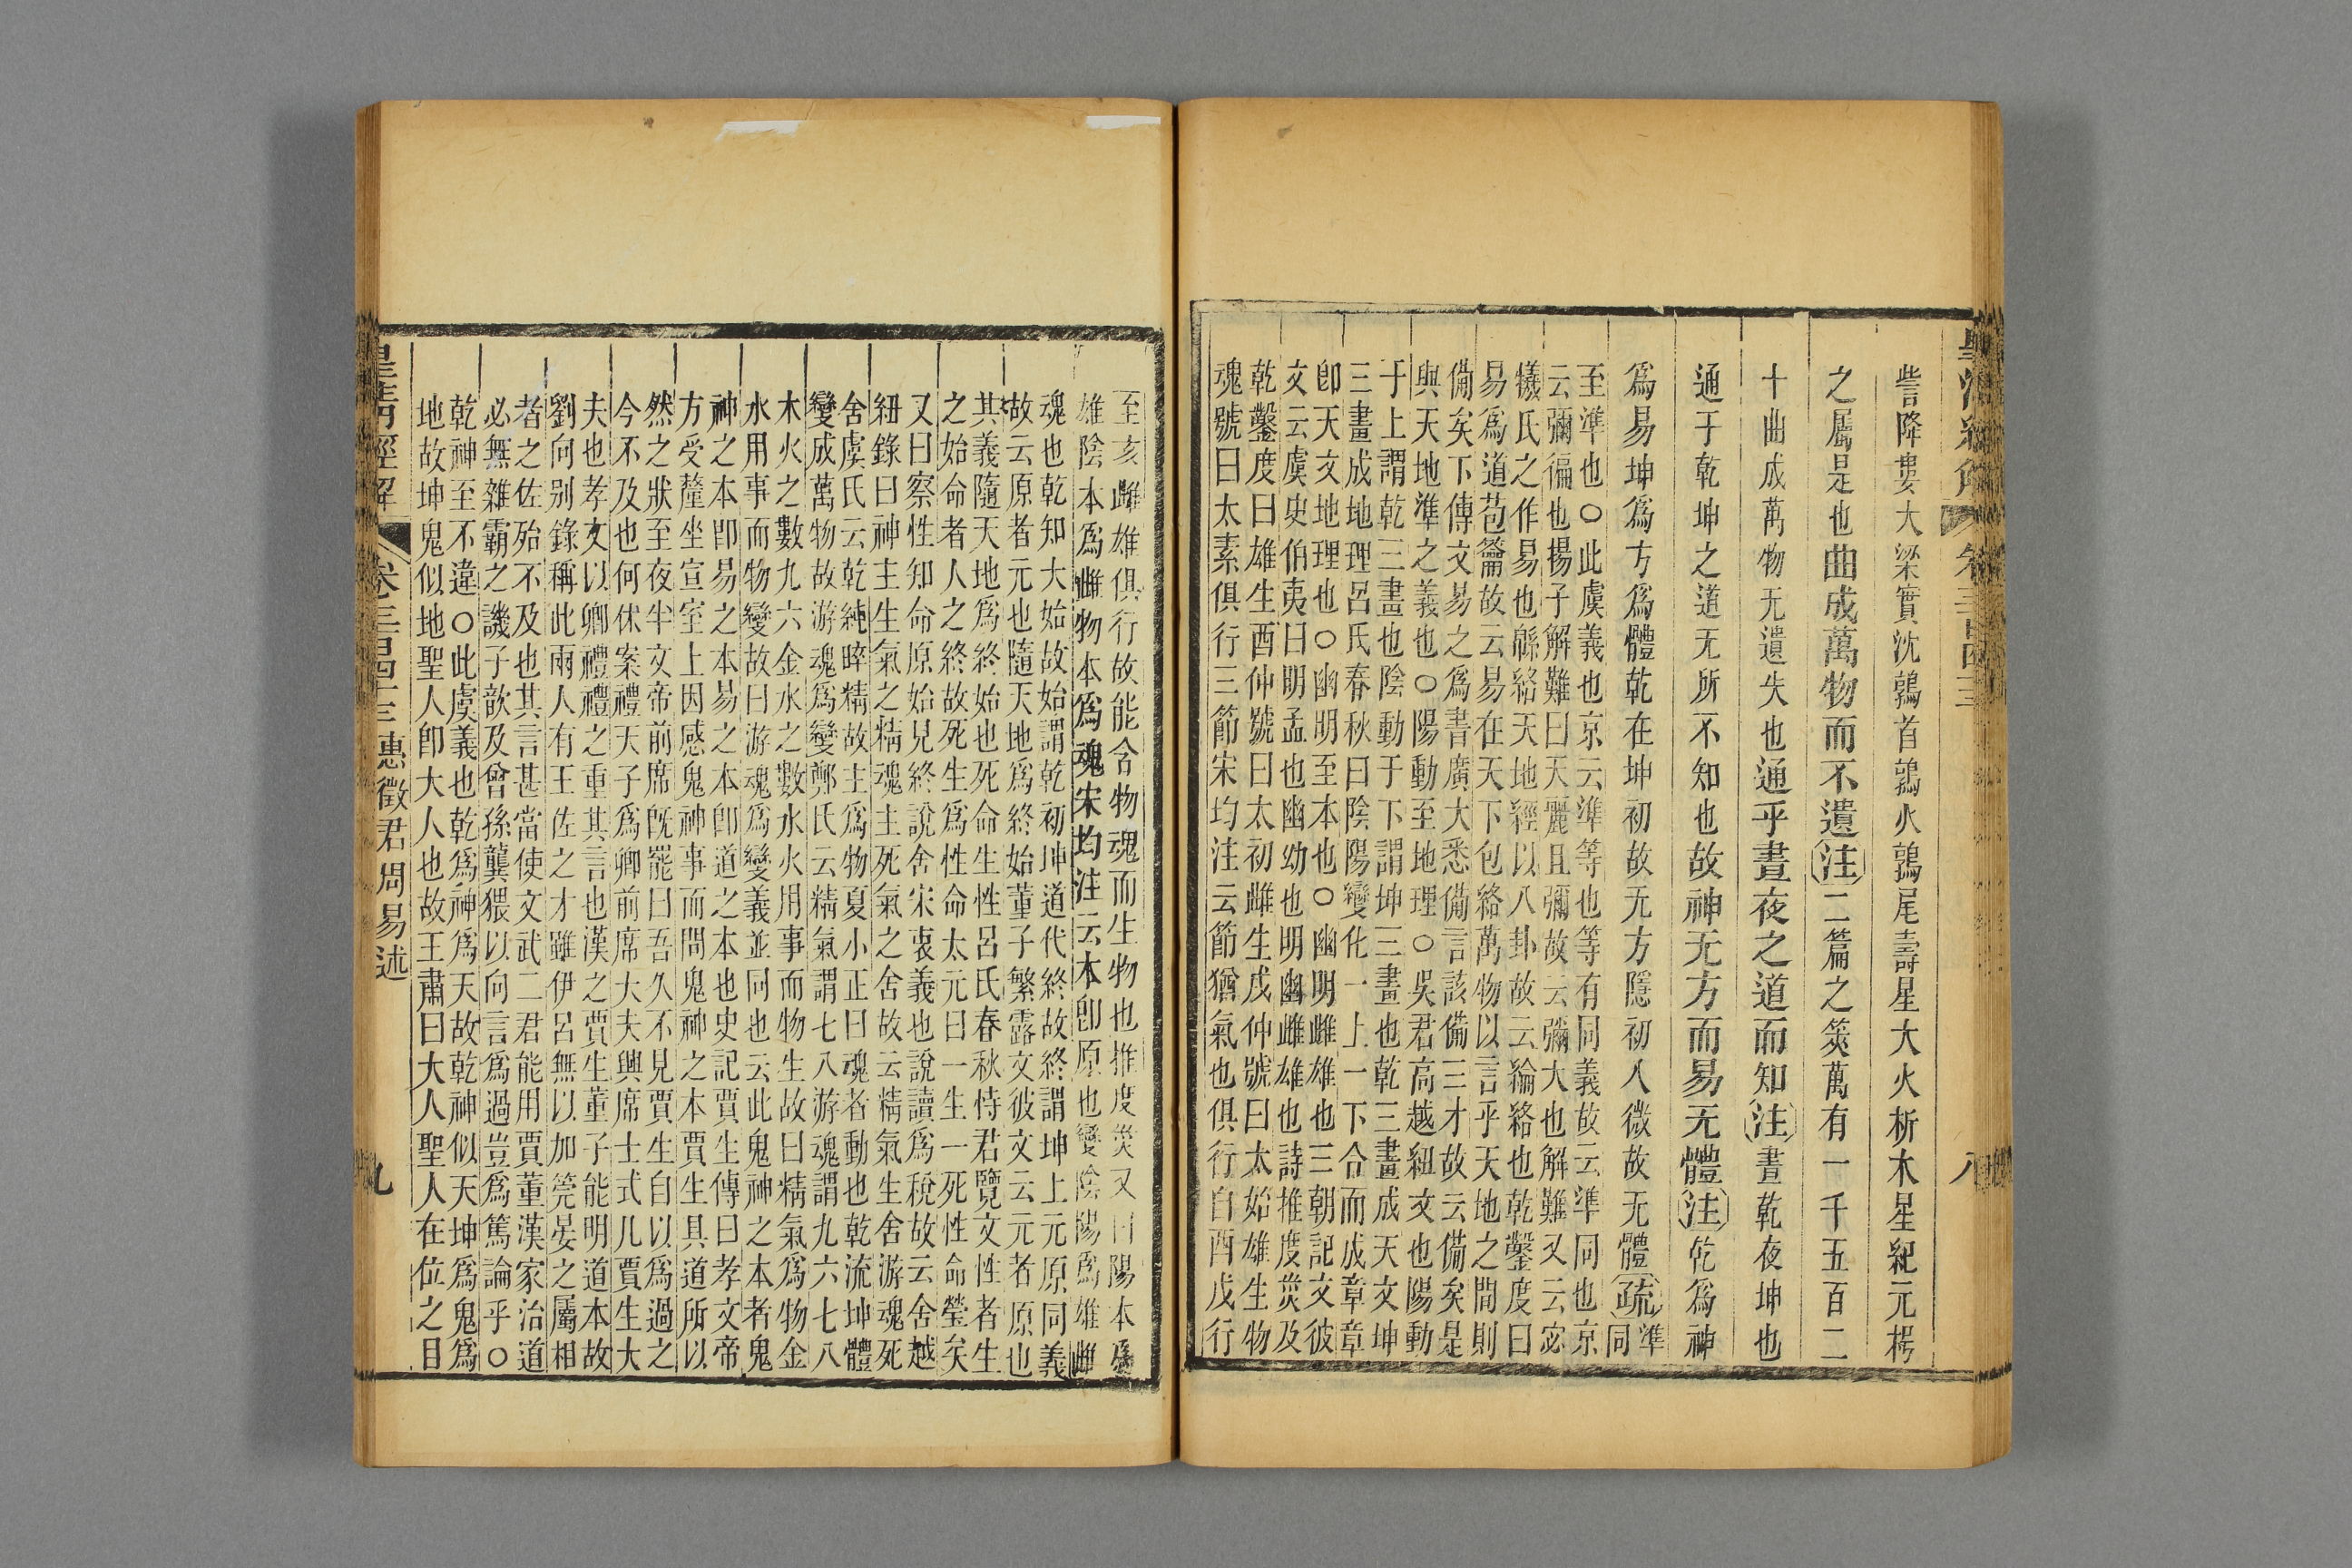 皇清經解
卷三百四十三
八
訾降婁大梁實沈鶉首鶉火鶉尾壽星大火析木星紀元枵
之屬是也曲成萬物而不遺注二篇之筴萬有一千五百二
十曲成萬物无遺失也通乎晝夜之道而知注晝乾夜坤也
通于乾坤之道无所不知也故神无方而易无體注乾爲神
爲易坤爲方爲體乾在坤初故无方隱初入微故无體疏準
同
至準也○此虞義也京云準等也等有同義故云準同也京
云彌徧也揚子解難曰天麗且彌故云彌大也解難又云宓
犧氏之作易也緜絡天地經以八卦故云綸絡也乾鑿度曰
易爲道苞籥故云易在天下包絡萬物以言乎天地之間則
備矣下傳文易之爲書廣大悉備言該備三才故云備矣是
與天地準之義也○陽動至地理○吳君高越紐文也陽動
于上謂乾三畫也陰動于下謂坤三畫也乾三畫成天文坤
三畫成地理呂氏春秋曰陰陽變化一上一下合而成章章
卽天文地理也○幽明至本也○幽明雌雄也三朝記文彼
文云虞史伯夷曰明孟也幽幼也明幽雌雄也詩推度災及
乾鑿度曰雄生酉仲號曰太初雌生戌仲號曰太始雄生物
魂號曰太素俱行三節宋均注云節猶氣也俱行自酉戌行
至亥雌雄俱行故能含物魂而生物也推度災又曰陽本爲
雄陰本爲雌物本爲魂宋均注云本卽原也變陰陽爲雄雌
魂也乾知大始故始謂乾初坤道代終故終謂坤上元原同義
故云原者元也隨天地爲終始董子繁露文彼文云元者原也
其義隨天地爲終始也死命生性呂氏春秋恃君覽文性者生
之始命者人之終故死生爲性命太元曰一生一死性命瑩矣
又曰察性知命原始見終說舍宋衷義也說讀爲稅故云舍越
紐錄曰神主生氣之精魂主死氣之舍故云精氣生舍游魂死
舍虞氏云乾純睟精故主爲物夏小正曰魂者動也乾流坤體
變成萬物故游魂爲變鄭氏云精氣謂七八游魂謂九六七八
木火之數九六金水之數水火用事而物生故曰精氣爲物金
水用事而物變故曰游魂爲變義並同也云此鬼神之本者鬼
神之本卽易之本易之本卽道之本也史記賈生傳曰孝文帝
方受釐坐宣室上因感鬼神事而問鬼神之本賈生具道所以
然之狀至夜半文帝前席旣罷曰吾久不見賈生自以爲過之
今不及也何休案禮天子爲卿前席大夫興席士式几賈生大
夫也孝文以卿禮禮之重其言也漢之賈生董子能明道本故
劉向別錄稱此兩人有王佐之才雖伊呂無以加筦晏之屬相
者之佐殆不及也其言甚當使文武二君能用賈董漢家治道
必無雜霸之譏子歆及曾孫龔猥以向言爲過豈爲篤論乎○
乾神至不違○此虞義也乾爲神爲天故乾神似天坤爲鬼爲
地故坤鬼似地聖人卽大人也故王肅曰大人聖人在位之目
皇清經解
卷三百四十三 惠徵君周易述
九